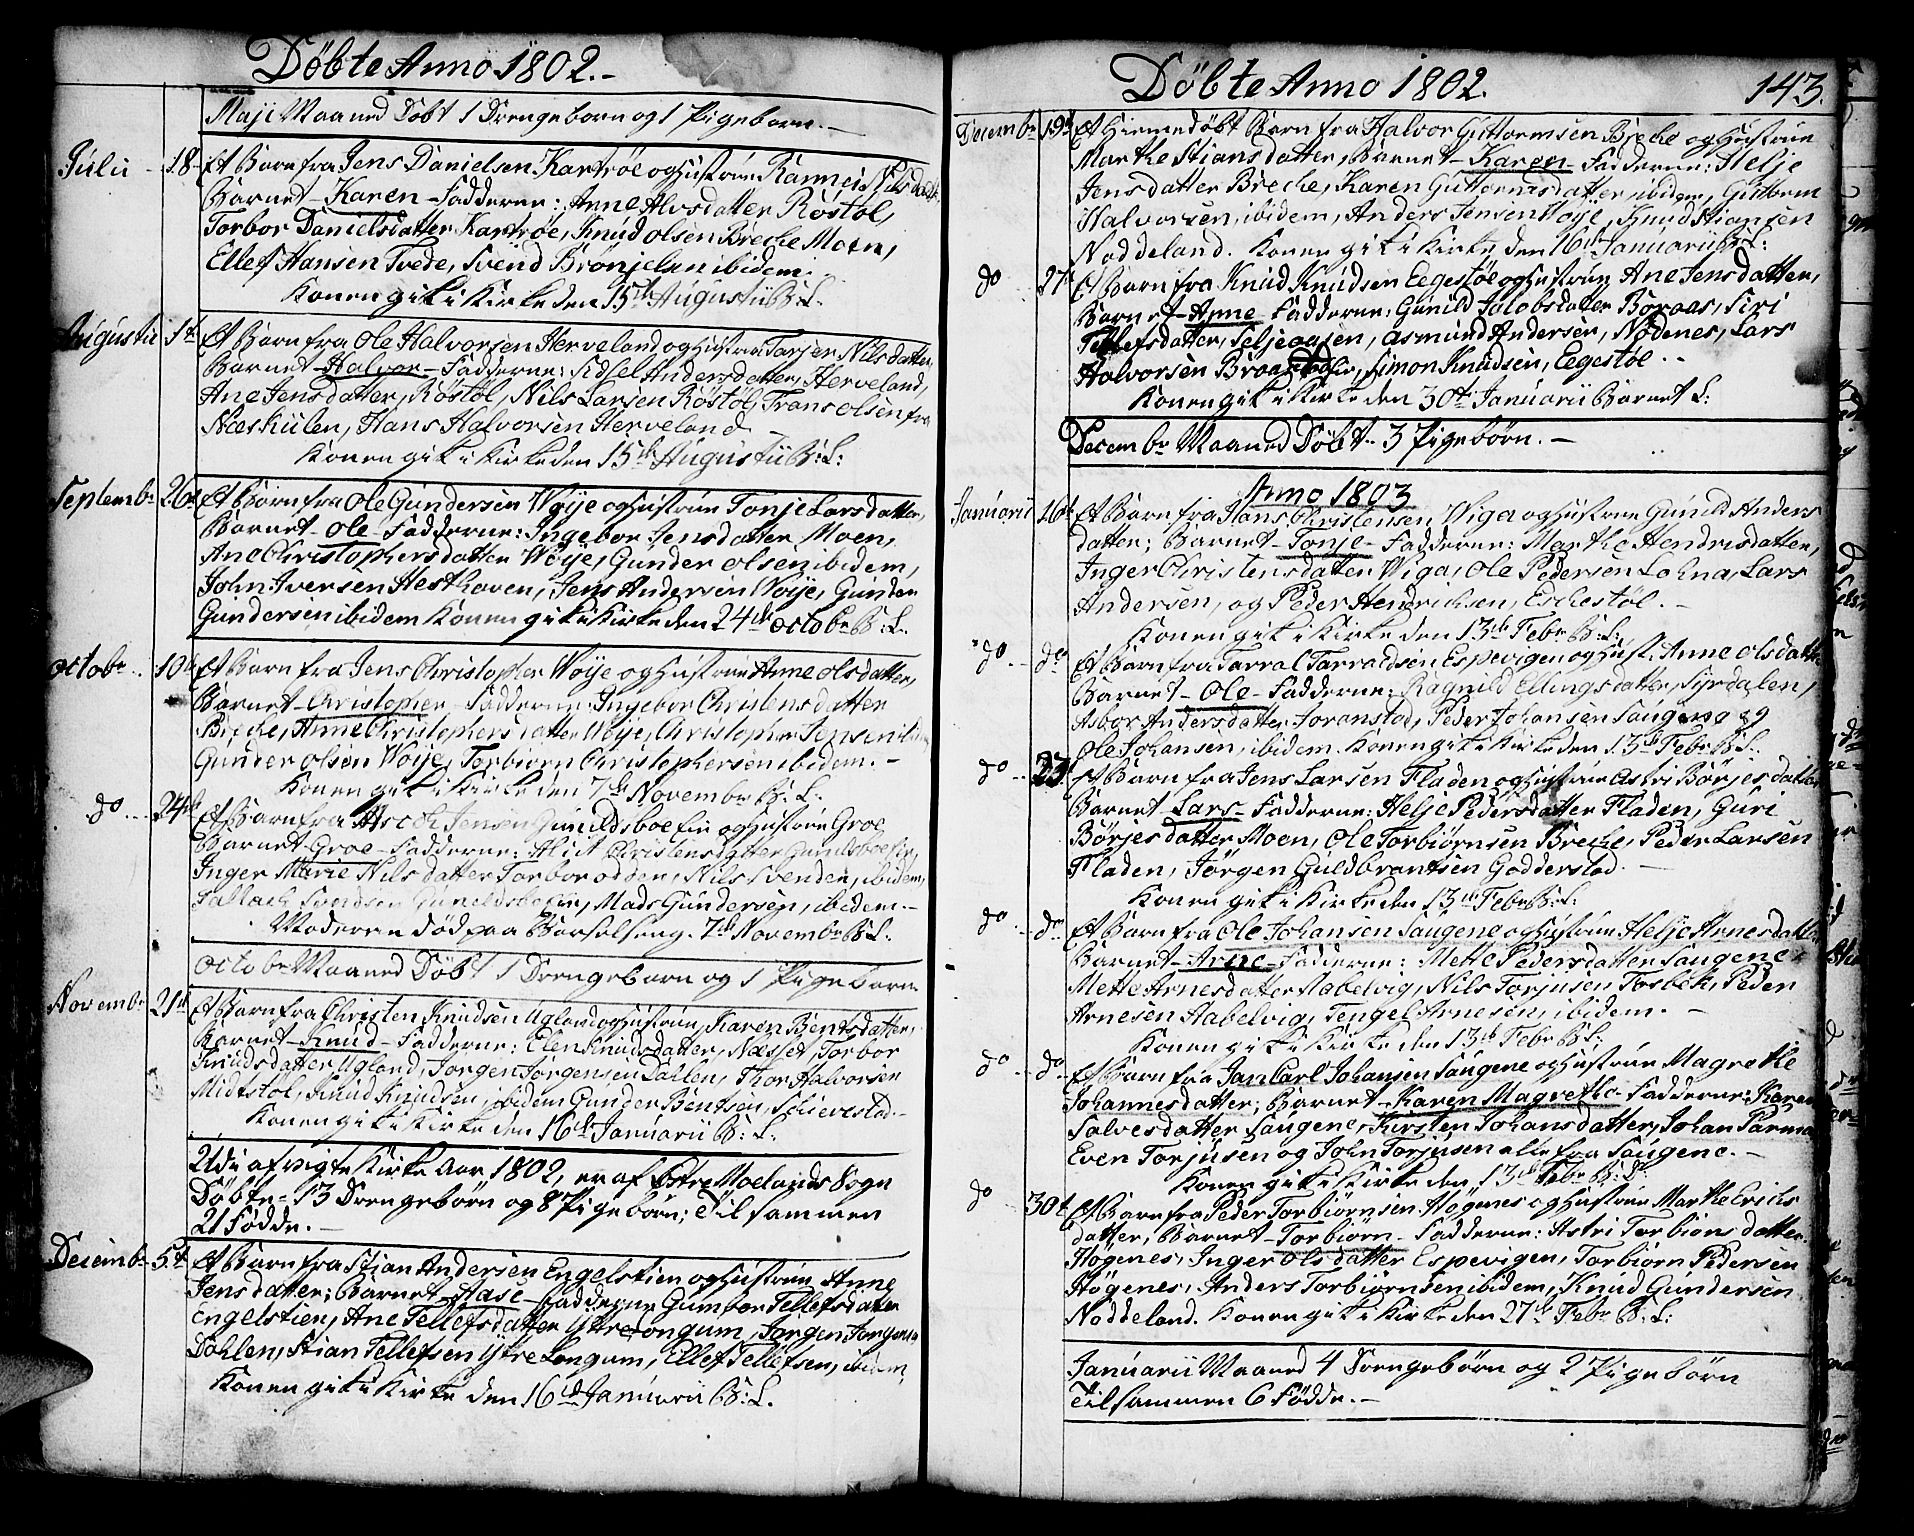 Döbte Anno 1802.-
Maji Maaned Döbt 1 Drengebarn og 1 Pigebarn.-
Julii 18. Et Barn fra Jens Danielsen Kartröe og Hustrue
Barnet - Karen - Fadderne: Anne Alvsdatter Röstöl,
Torbor Danielsdatter Kartröe, Knud Olsen Breche Moen,
Ellef Hansen Tvede, Svend Brönjelsen ibidem.
Konen gik i Kirke den 15de Augustii B: L.
Augustii 1t Et Barn fra Ole Halvorsen Herveland og Hustrue Torjer Nilsdatter,
Barnet - Halvor - Fadderne: Sidsel Andersdatter, Herveland,
Ane Jensdatter, Röstöl, Nils Larsen Röstöl, Frans Olsen fra
Næskiilen, Hans Halvorsen Herveland.
Konen gik i Kirke den 15de Augustii B: L:
Septembr 26 Et Barn fra Ole Gundersen Wöije og Hustrue Tonje Larsdatter,
Barnet - Ole - Fadderne: Ingebor Jensdatter Moen,
Ane Christophersdatter Wöije, Gunder Olsen ibidem,
John Iversen Hesthaven, Jens Andersen Wöije, Gunder
Gundersen ibidem Konen gik i Kirke den 24de Octobr B: L.
Octobr 10de Et Barn fra Jens Christopher Wöije og Hustrue Anne Olsdatter,
Barnet - Christopher - Fadderne: Ingebor Christensdatter
Breche, Anne Christophersdatter Wöije, Christopher Jensen ibidem
Gunder Olsen Wöije, Torbiörn Christophersen ibidem.-
Konen gik i Kirke den 7de Novembr B: L.
do 24de Et Barn fra Jensen og Hustrue Groe
Barnet Groe - Fadderne: Christensdatter
Inger Marie Nilsdatter Torbor Odden, Nils Svenden, ibidem,
Svendsen Mads Gundersen, ibidem.-
Moderen död paa Barselseng. 7de Novembr B: L.
Octobr Maaned Döbt 1 Drengebarn og 1 Pigebarn
Novembr 21de Et Barn fra Christen Knudsen Ugland og Hustrue, Karen Bentsdatter,
Barnet - Knud - Fadderne: Elen Knudsdatter, Næsset, Torbor
Knudsdatter Ugland, Jorgen Jorgensen Dallen, Thor Halvorsen
Midtstol, Knud Knudsen, ibidem Gunder Bentsen,
Konen gik i Kirke den 16de Januarii B: L.
Udi afvigte Kirke Aar 1802, er af Östre Moelands Sogn
Döbte - 13 Drengebörn og 8 Pigebörn; Tilsammen
21 Födde.-
Decembr 5t Et Barn fra Stian Andersen Engelstien og Hustrue, Anne
Jensdatter; Barnet - Aase - Fadderne Gumbor Tellefsdatter
Engelstien, Ane Tellefsdatter Ytre Longum, Jorgen Jorgensen
Dohlen, Stian Tellefsen Ytre Longum, Ellef Tellefsen, ibidem,
Konen gik i Kirke den 16de Januarii B: L.
Döbte Anno 1802. 143.
Decembr 19de Et Hiemedöbt Barn fra Halvor Guttormsen Breche og Hustrue
Marthe Stiansdatter, Barnet - Karen - Fadderne: Helje
Jensdatter Breche, Karen Guttormsdatter ibidem, Guttorm
Halvorsen, ibidem, Anders Jensen Wöije, Knud Stiansen
Noddeland. Konen gik i Kirke den 16de Januarii B: L:
do 27de Et Barn fra Knud Knudsen Eegestöe og Hustrue Ane Jensdatter,
Barnet - Anne Fadderne: Gunild Jacobsdatter Boraas, Siri
Tellefsdatter, Seljeaasen, Asmund Andersen, Nödenes, Lars
Halvorsen Simon Knudsen, Eegestöe.-
Konen gik i Kirke den 30te Januarii Barnet L:
Decembr Maaned Döbt - 3 Pigebörn.-
Anno 1803
Januarii 16de Et Barn fra Hans Christensen Wiga og Hustrue Gunild Anders
datter; Barnet - Tonje - Fadderne: Marthe Hendrisdatter,
Inger Christensdatter Wiga, Ole Pedersen Lohna, Lars
Andersen, og Peder Hendrichsen, Eschestöl.-
Konen gik i Kirke den 13de Febr B: L:
do do Et Barn fra Tarral Tarraldsen Espevigen og Hust: Anne Olsdatter
Barnet - Ole - Fadderne: Ragnild Ellingsdatter, Syrdalen,
Asbor Andersdatter Joranstad, Peder Johansen Saugene og
Ole Johansen, ibidem. Konen gik i Kirke den 13de Febr B: L:
do 23. Et Barn fra Jens Larsen Fladen og Hustrue Astri Börjesdatter
Barnet Lars - Fadderne: Helje Pedersdatter Fladen, Guri
Börjesdatter Moen, Ole Torbiörnsen Breche, Peder Larsen
Fladen, Jörgen Guldbrantsen Godderstad.-
Konen gik i Kirke den 13de Febr B: L:
do do Et Barn fra Ole Johansen Saugene og Hustrue Helje Arnesdatter
Barnet - Arne - Fadderne: Mette Pedersdatter Saugene
Mette Arnesdatter Habelvig, Nils Torjusen Torbek, Peder
Arnesen Habelvig, Tengel Arnesen, ibidem.-
Konen gik i Kirke den 13de Febr B: L:
do do Et Barn fra Jan Carl Johansen Saugene og Hustrue Magrethe
Johannesdatter; Barnet - Karen Magrethe - Fadderne: Karen
Salvesdatter Saugene, Kirsten Johansdatter, Johan Parma
Even Torjusen og John Torjusen alle fra Saugene.-
Konen gik i Kirke den 13de Febr B: D:
do 30t Et Barn fra Peder Torbiörnsen Högenes og Hustrue Marthe Erichs
datter, Barnet - Torbiörn - Fadderne: Astri Torbiönsdatter
Högenes, Inger Olsdatter Espevigen, Torbiörn Pedersen
Högenes, Anders Torbiörnsen ibidem, Knud Gundersen
Noddeland. Konen gik i Kirke den 27de Febr B: L:
Januarii Maaned 4 Drengebörn og 2 Pigebörn
Tilsammen 6 Födde.-